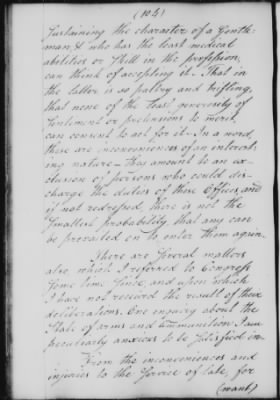 (104)
sustaining the character of a Gentle-
man, & who has the least medical
abilities or skill in the profession,
can think of accepting it. That in
the latter is so paltry and trifling,
that none of the least generosity of
sentiment or pretensions to merit,
can consent to act for it. In a word,
these are inconveniences of an interest-
ing nature - they amount to an ex-
clusion of persons who could dis-
charge the duties of these Offices, and
if not redressed, there is not the
smallest probability that any can
be prevailed on to enter them again.
There are several matters
also which I referred to Congress
some time since, and upon which
I have not received the result of their
deliberations. One enquiry about the
State of arms and Ammunition I am
peculiarly anxious to be satisfied on.
From the inconveniences and
injuries to the Service of late, for
(want)